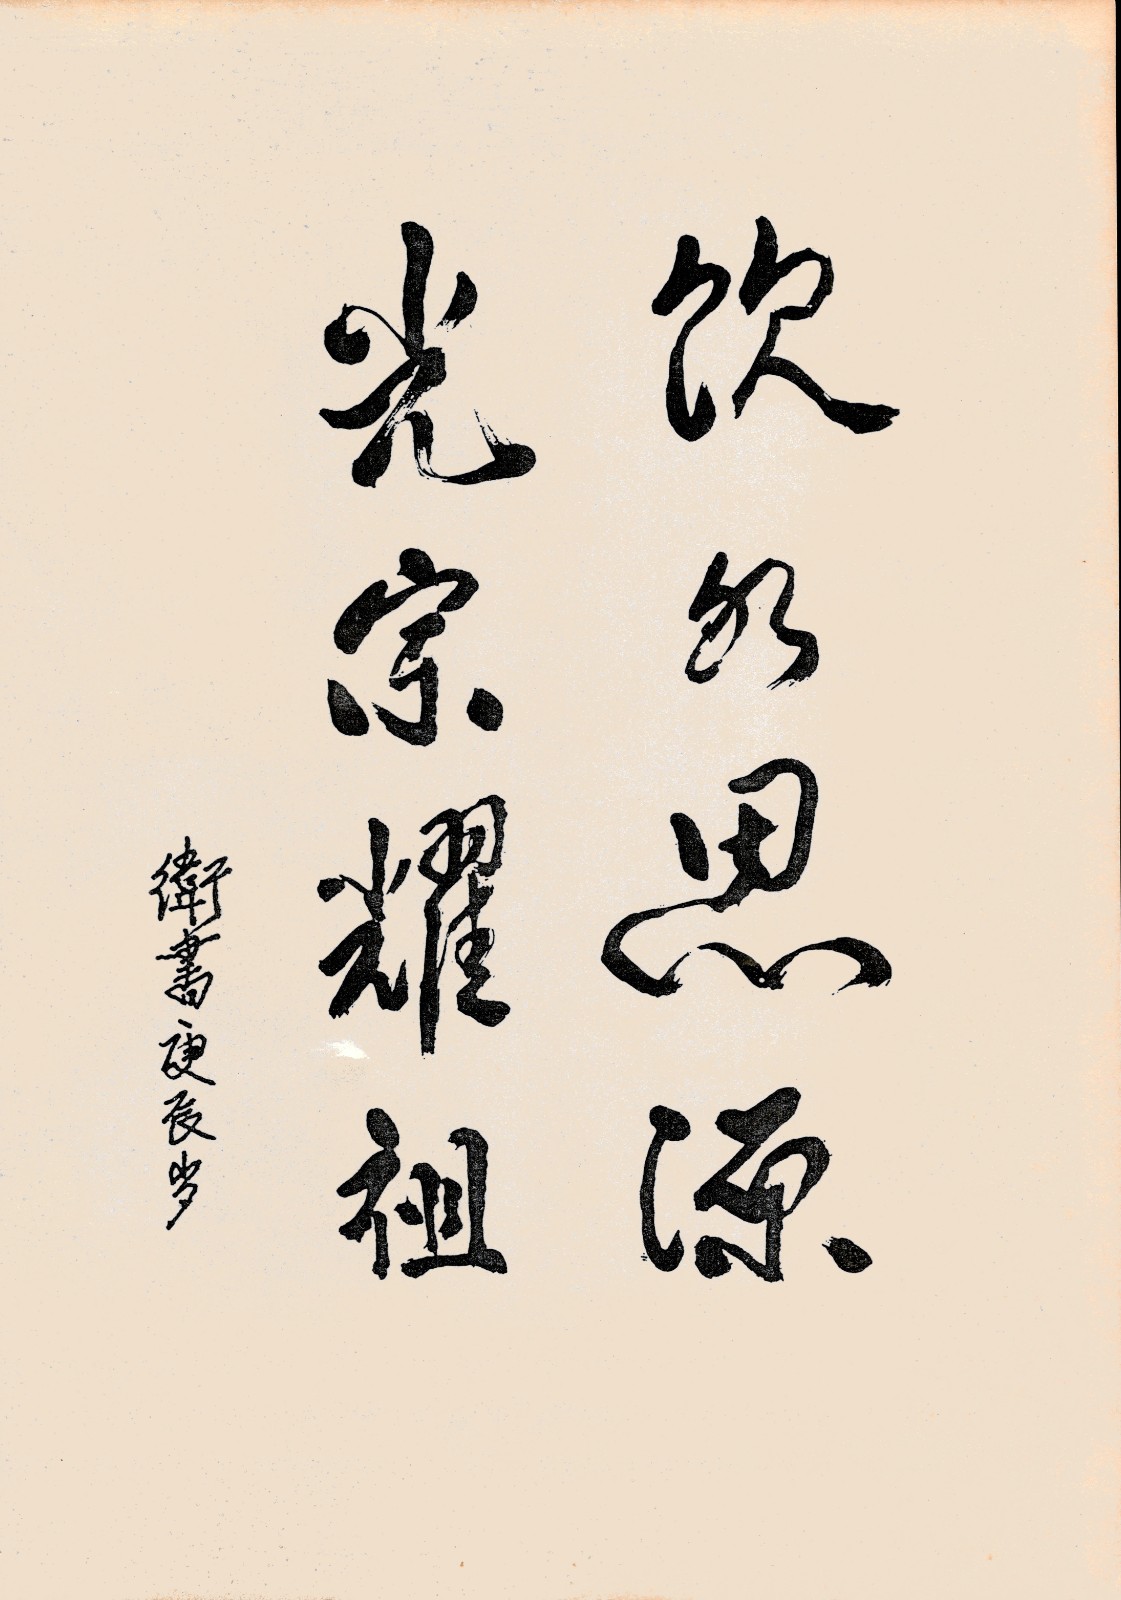 饮水思源
光宗耀祖
衛書庚辰岁